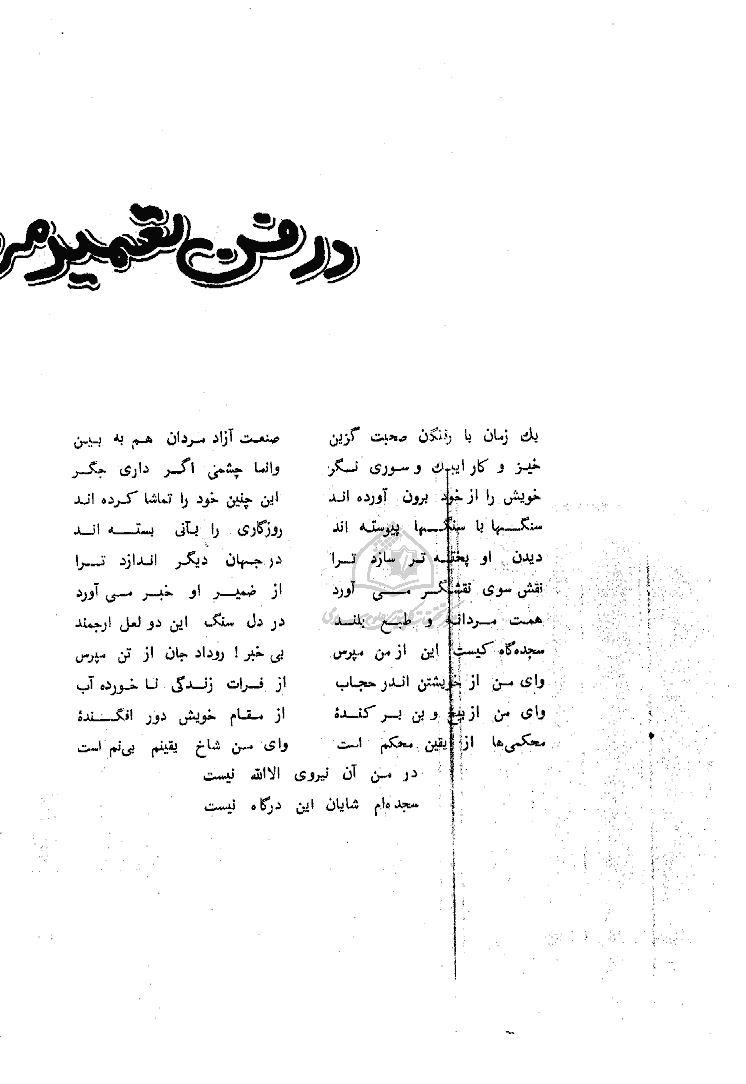 در فن تعمیر مر
یك زمان با رفتگان صحبت گزین صنعت آزاد مردان هم به بین
خیز و کار ایبك و سوری نگر وانما چشمی اگر داری جگر
خویش را از خود برون آورده اند این چنین خود را تماشا کرده اند
سنگها با سنگها پیوسته اند روزگاری را بآنی بسته اند
دیدن او پخته تر سازد ترا در جهان دیگر اندازد ترا
نقش سوی نقشگر می آورد از ضمیر او خبر می آورد
همت مردانه و طبع بلند در دل سنگ این دو لعل ارجمند
سجده‌گاه کیست این از من مپرس بی خبر! روداد جان از تن مپرس
وای من از خویشتن اندر حجاب از فرات زندگی نا خورده آب
وای من از بیخ و بن بر کندهٔ از مقام خویش دور افگندهٔ
محکمی‌ها از یقین محکم است وای من شاخ یقینم بی‌نم است
در من آن نیروی الاالله نیست
سجده‌ام شایان این درگاه نیست